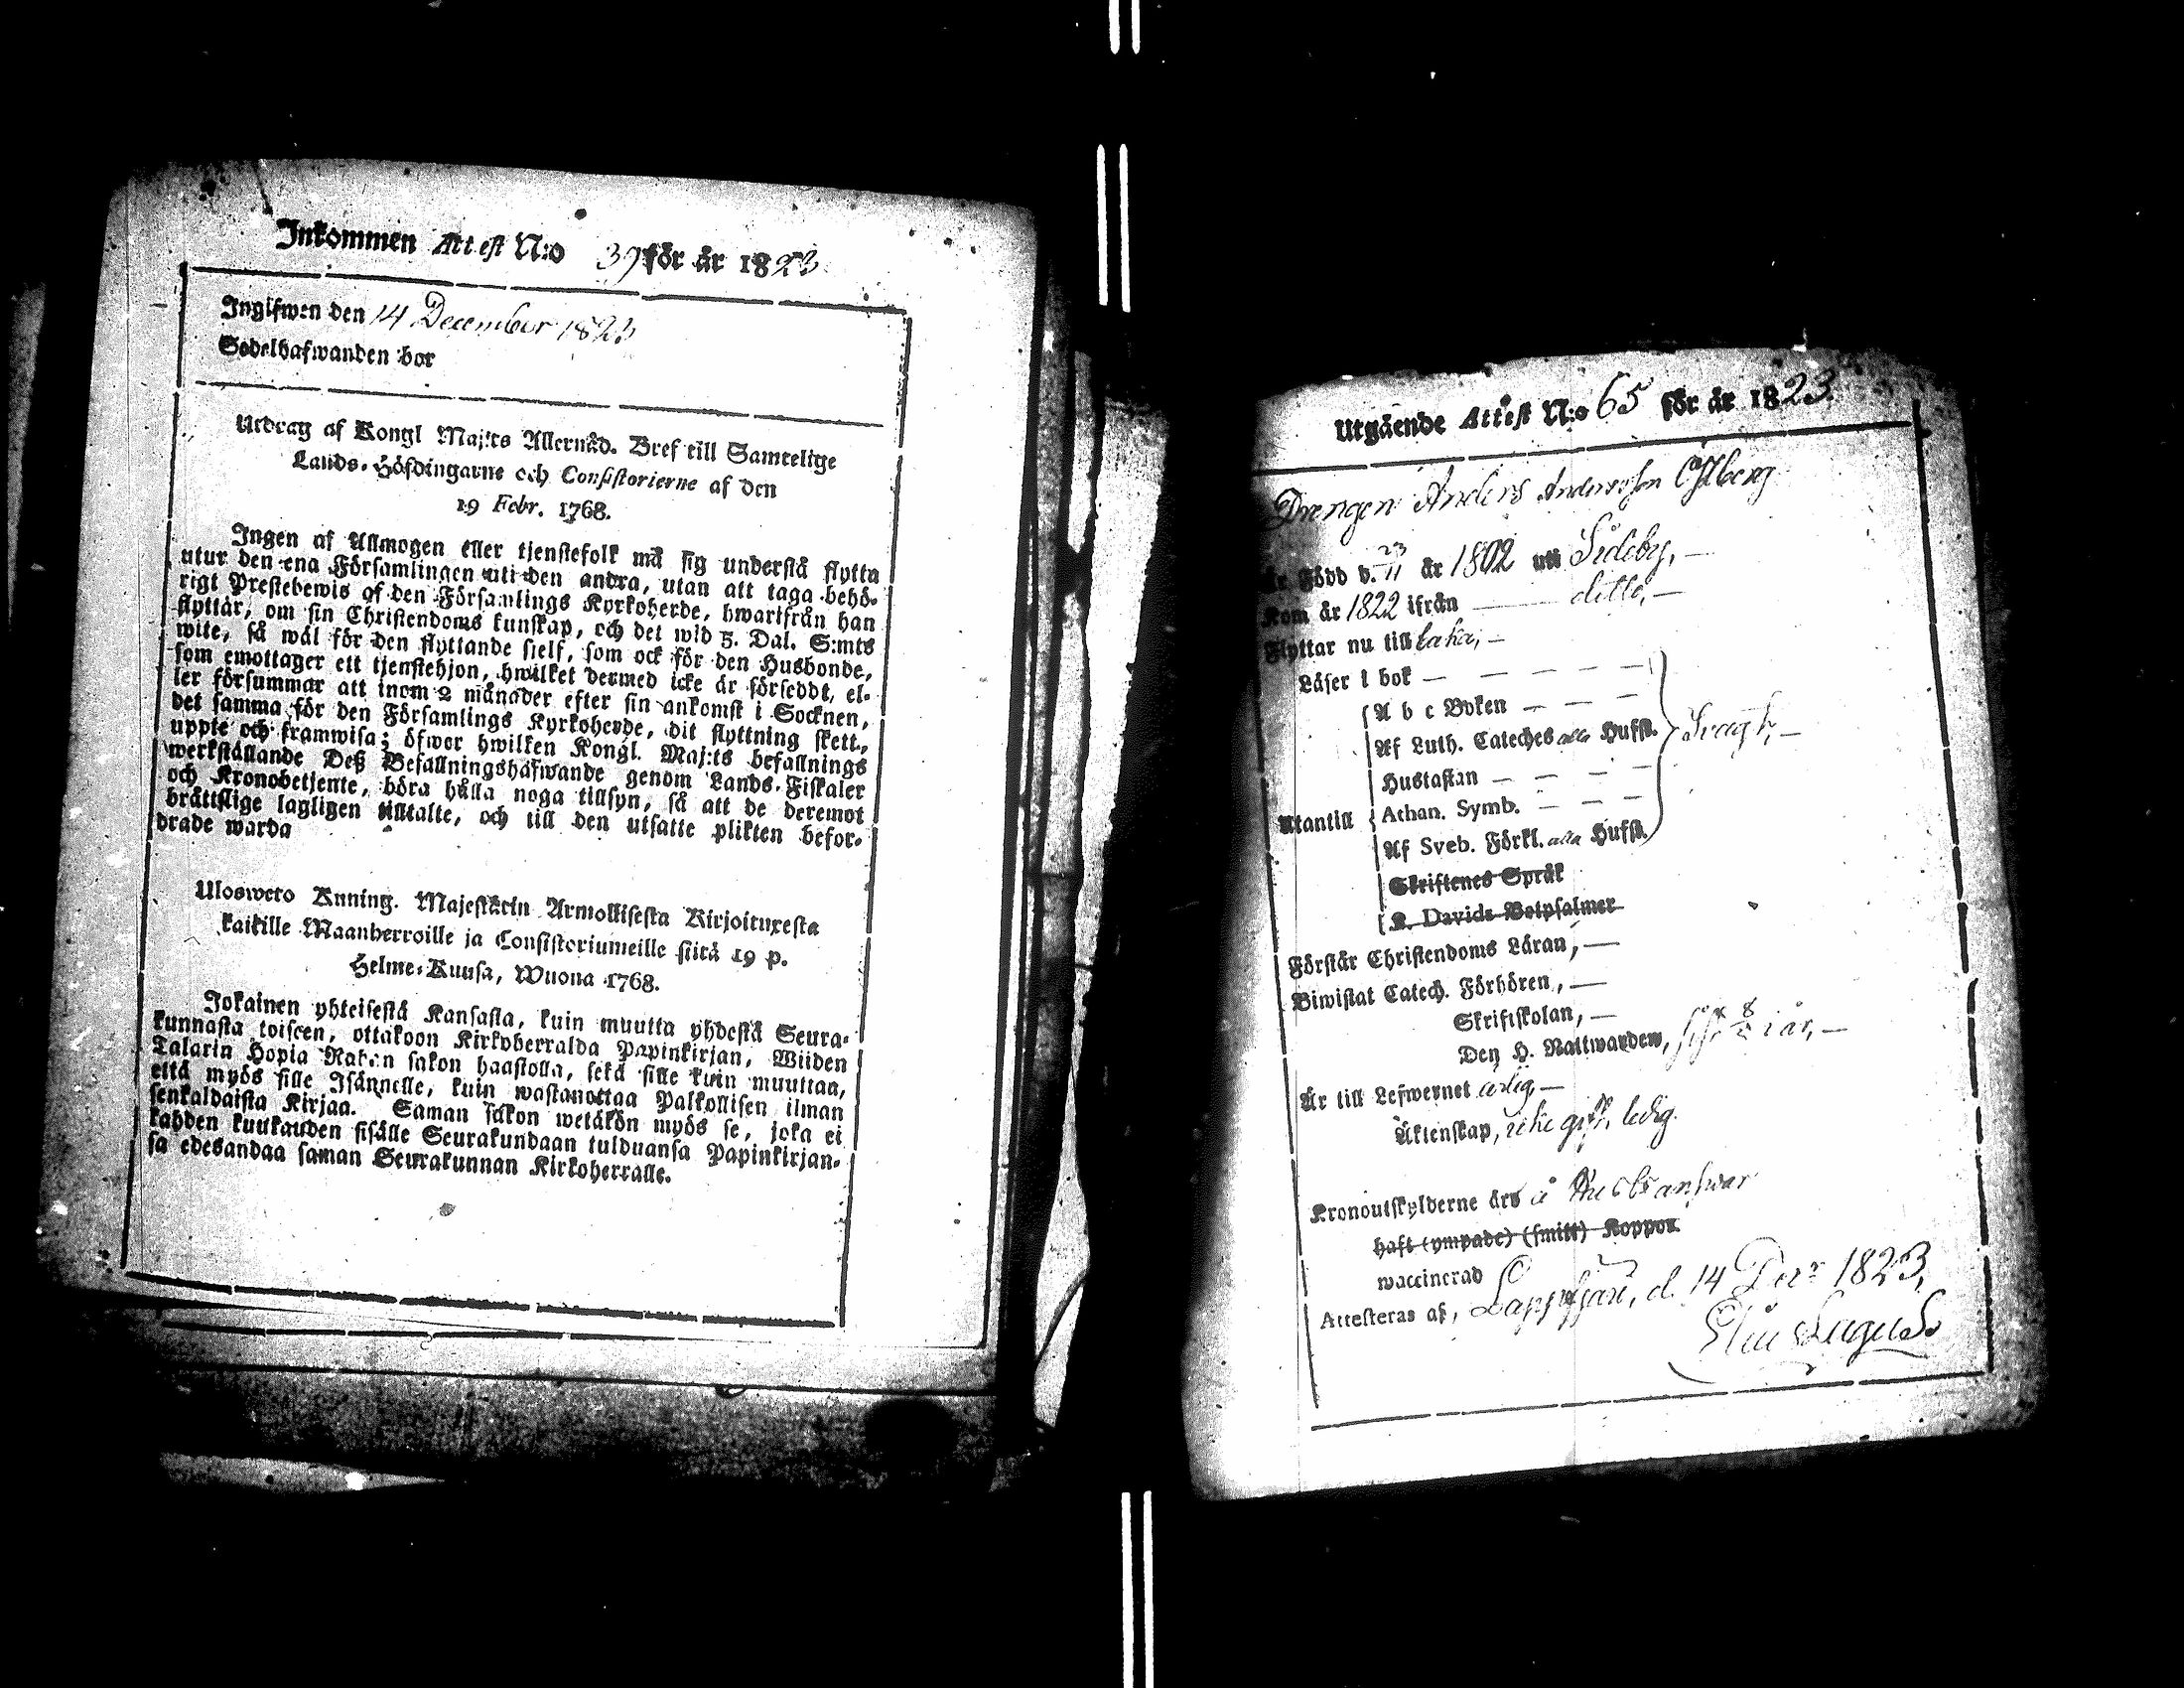 Inkommen Attest N:o 39 för år 1823
Ingifwen den 14 December 1823
Sedelhafwanden bor
Utdrag af Kongl Maj:ts Allernåd. Bref till Samtelige
Lands-Höfdingarne och Consistorierne af den
19 Febr. 1768.
Ingen af Allmogen eller tjenstefolk må sig understå flytta
utur den ena Församlingen uti den andra, utan att taga behö-
rigt Prestebewis af den Församlings Kyrkoherde, hwarifrån han
flyttar, om sin Christendoms kunskap, och det wid 5. Dal. S:mts
wite, så wäl för den flyttande sielf, som ock för den Husbonde,
som emottager ett tjenstehjon, hwilket dermed icke är förseddt, el-
ler försummar att inom 2 månader efter sin ankomst i Socknen,
det samma för den Församlings Kyrkoherde, dit flyttning skett,
uppte och framwisa; öfwer hwilken Kongl. Maj:ts befallnings
werkställande Deß Befallningshafwande genom Lands-Fiskaler
och Kronobetjente, böra hålla noga tillsyn, så att de deremot
bråttslige lagligen tilltalte, och till den utsatte plikten befor-
drade warda
Ulosweto Kuning. Majestätin Armollisesta Kirjoituxesta
kaikille Maanherroille ja Consistoriumeille siitä 19 p.
Helme-Kuusa, Wuona 1768.
Jokainen yhteisestä Kansasta, kuin muutta yhdestä Seura-
kunnasta toiseen, ottakoon Kirkoherralda Papinkirjan, Wiiden
Talarin Hopia Rahan sakon haastolla, sekä sille kuin muuttaa,
että myös sille Isännelle, kuin wastanottaa Palkollisen ilman
senkaldaista Kirjaa. Saman sakon wetäkön myös se, joka ei
kahden kuukauden sisälle Seurakundaan tulduansa Papinkirjan-
sa edesandaa saman Seurakunnan Kirkoherralle.
Utgående Attest N:o 65 för år 1823.
Drengen Anders Andersson Östberg
Är Född d. 23/11 år 1802 uti Sideby, —
Kom år 1822 ifrån — ditto, —
Flyttar nu till baka, —
Läser i bok — — — — —
A b c Boken — — —
Af Luth. Cateches alla Hufst. Svagt, —
Hustaflan — — — —
Athan. Symb. — — —
Utantill
Af Sveb. Förkl. alla Hufst.
Skriftenes Språk
K. Davids Botpsalmer
Förstår Christendoms Läran, —
Biwistat Catech. Förhören, —
Skriftskolan, —
Den H. Nattwarden, sist 8/ i år, —
Är till Lefwernet ärlig —
Äktenskap, icke gift, ledig.
Kronoutskylderne års å
haft (ympade) (smitt) Koppor
waccinerad
Attesteras af, Lappfjärd, d. 14 Decr 1823,
Elias Lagus